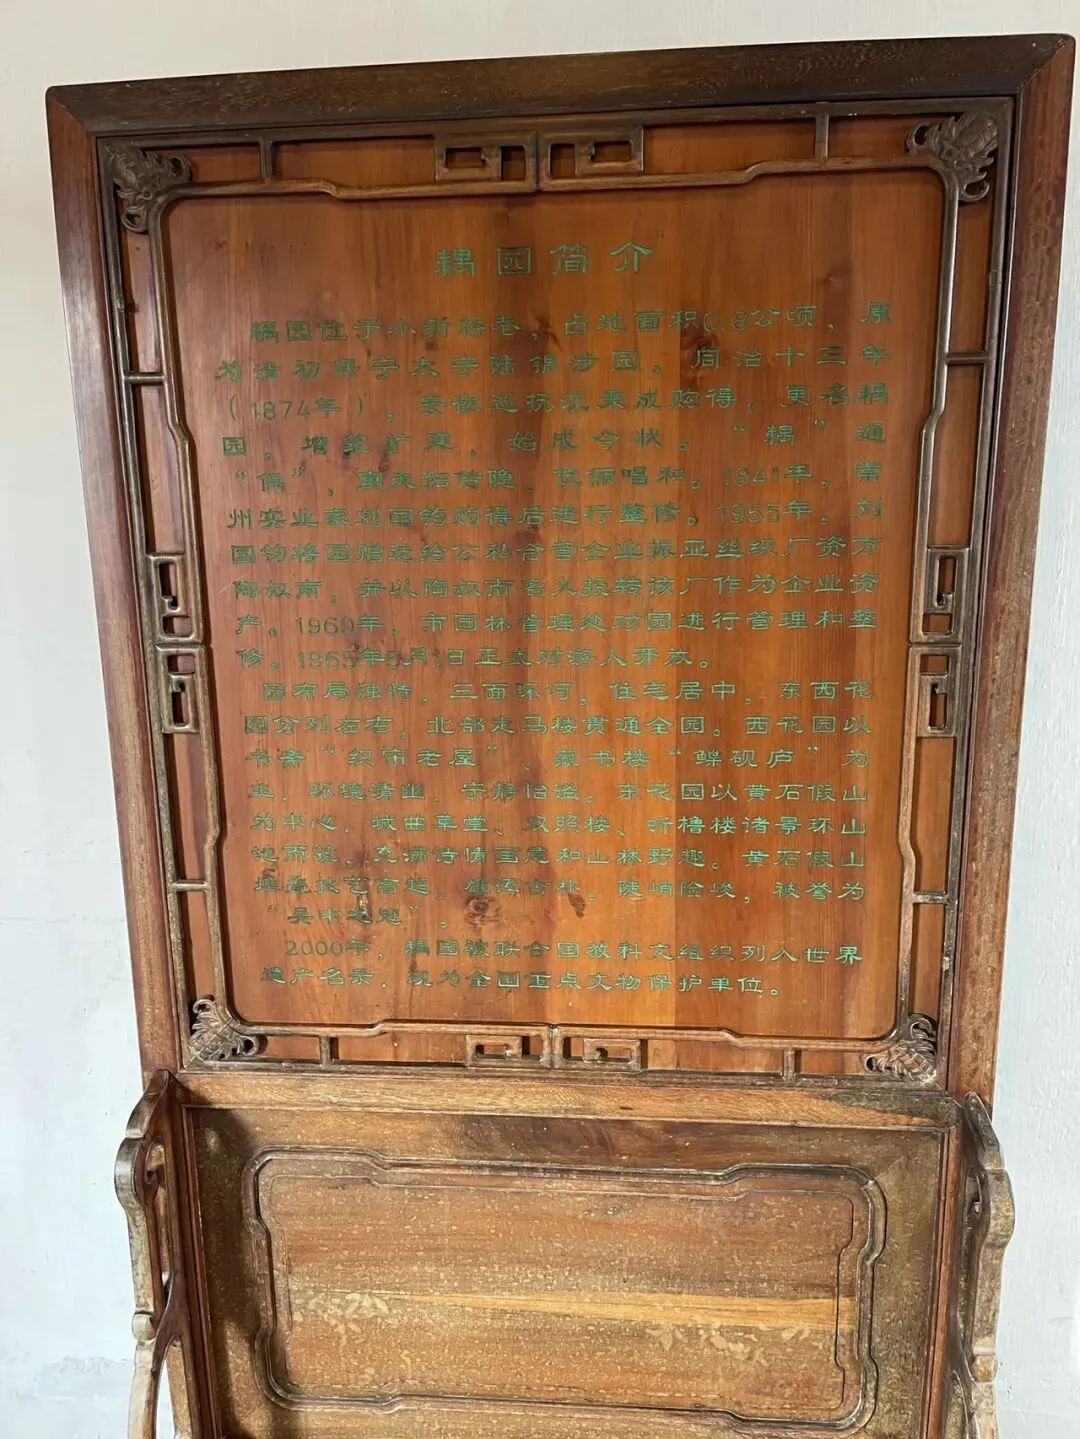 耦园简介
耦园位于小新桥巷，占地面积0.8公顷，原
为清初保宁太守陆锦涉园。同治十三年
（1874年），安徽巡抚沈秉成购得，更名耦
园，增筑扩建，始成今状。“耦”通
“偶”，寓夫妇偕隐、伉俪唱和。1941年，常
州实业家刘国钧购得后进行整修。1955年，刘
国钧将园赠送给公私合营企业振亚丝织厂资方
陶叔南，并以陶叔南名义投转该厂作为企业资
产。1960年，市园林管理处对园进行管理和整
修。1965年5月1日正式对游人开放。
园布局独特，三面环河，住宅居中，东西花
园分列左右，北部走马楼贯通全园。西花园以
书斋“织帘老屋”、藏书楼“鲽砚庐”为
主，环境清幽，宁静怡谧。东花园以黄石假山
为中心，城曲草堂、双照楼、听橹楼诸景环山
池而筑，充满诗情画意和山林野趣。黄石假山
堆叠技艺高超，雄浑古朴，陡峭险峻，被誉为
“吴中之冠”。
2000年，耦园被联合国教科文组织列入世界
遗产名录，现为全国重点文物保护单位。